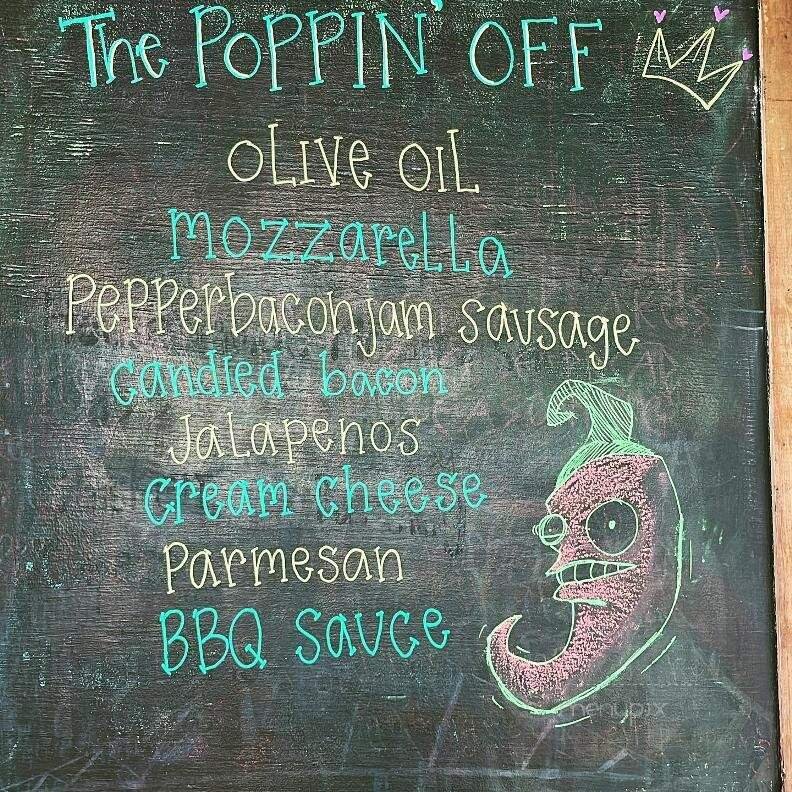 The POPPIN' OFF
OLIVE OIL
mozzarella
Pepperbaconjam sausage
candied bacon
Jalapenos
cream cheese
Parmesan
BBQ sauce
menupix